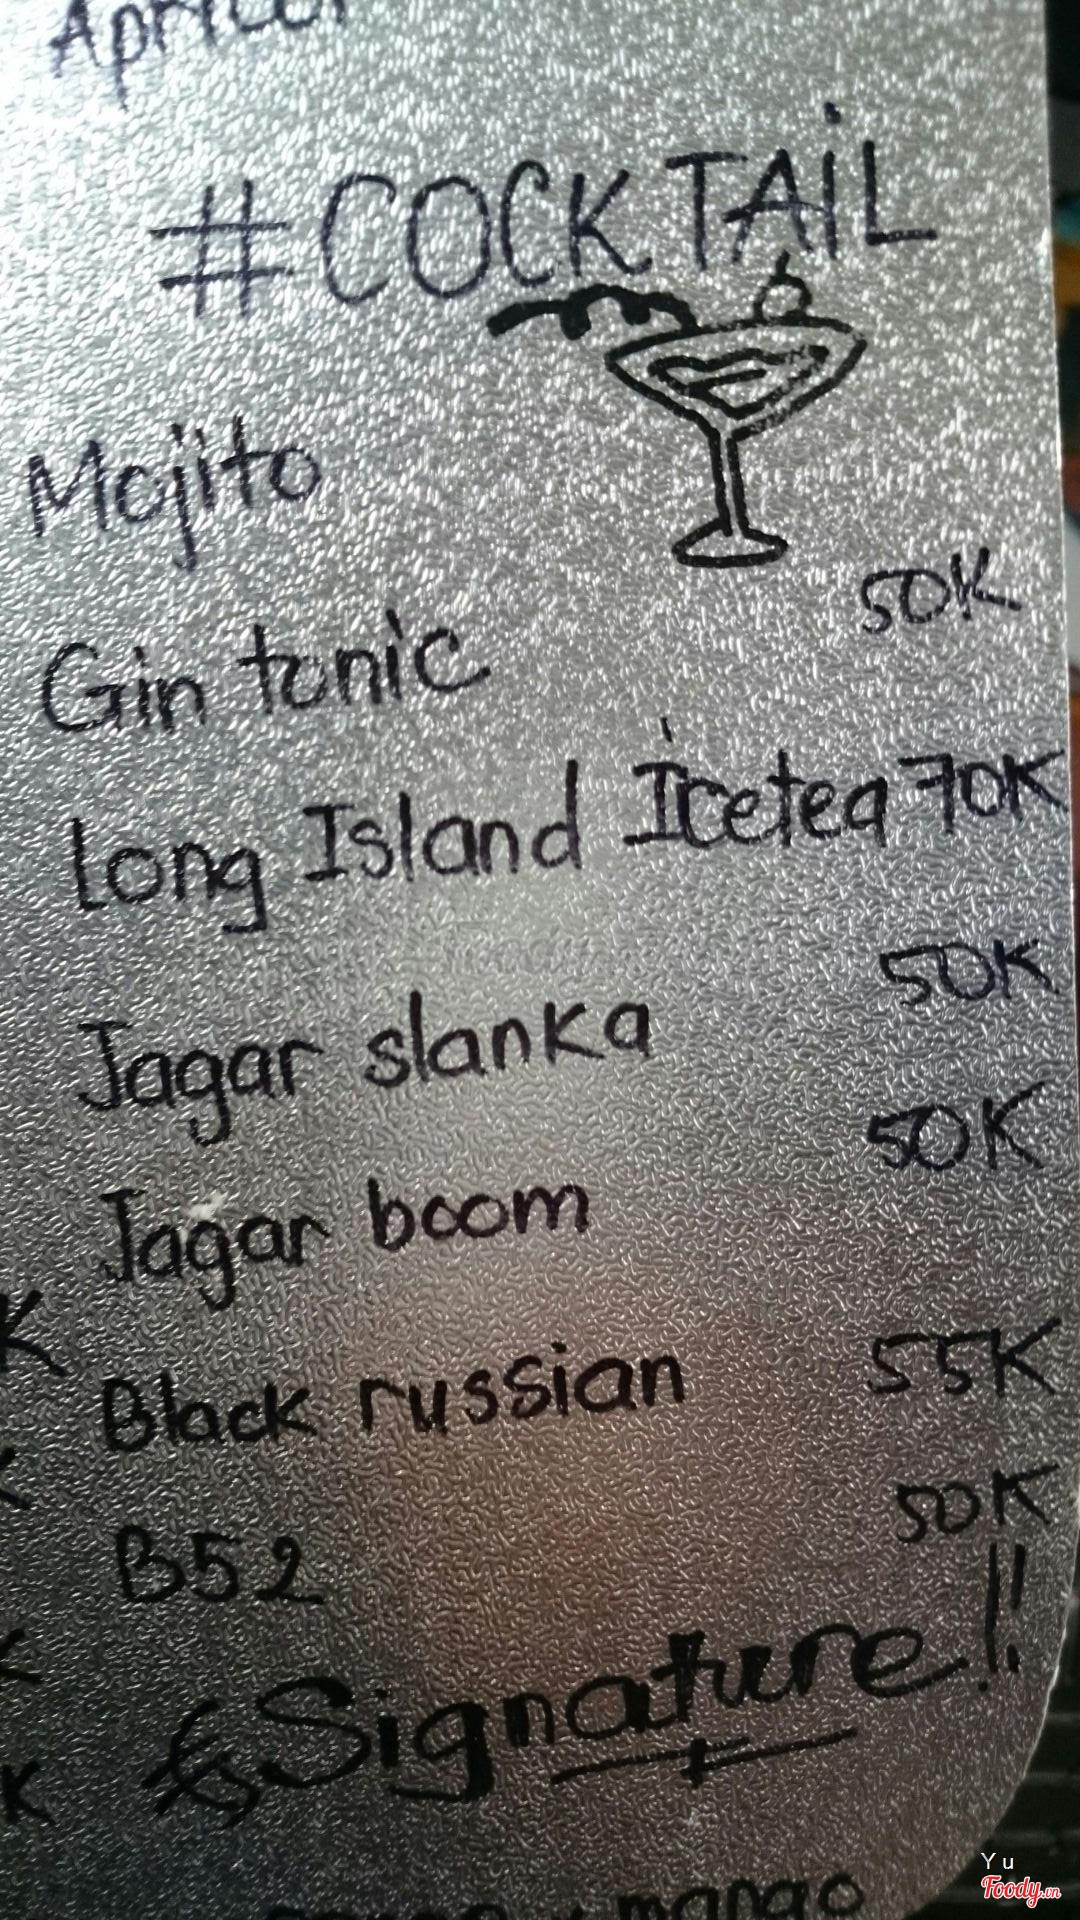 #COCKTAIL
Mojito
Gin tonic 50K
Long Island Icetea 70K
Jagar slanka 50K
Jagar boom 50K
Black russian 55K
B52 50K
Signature!!
mango
Yu
Foody.vn